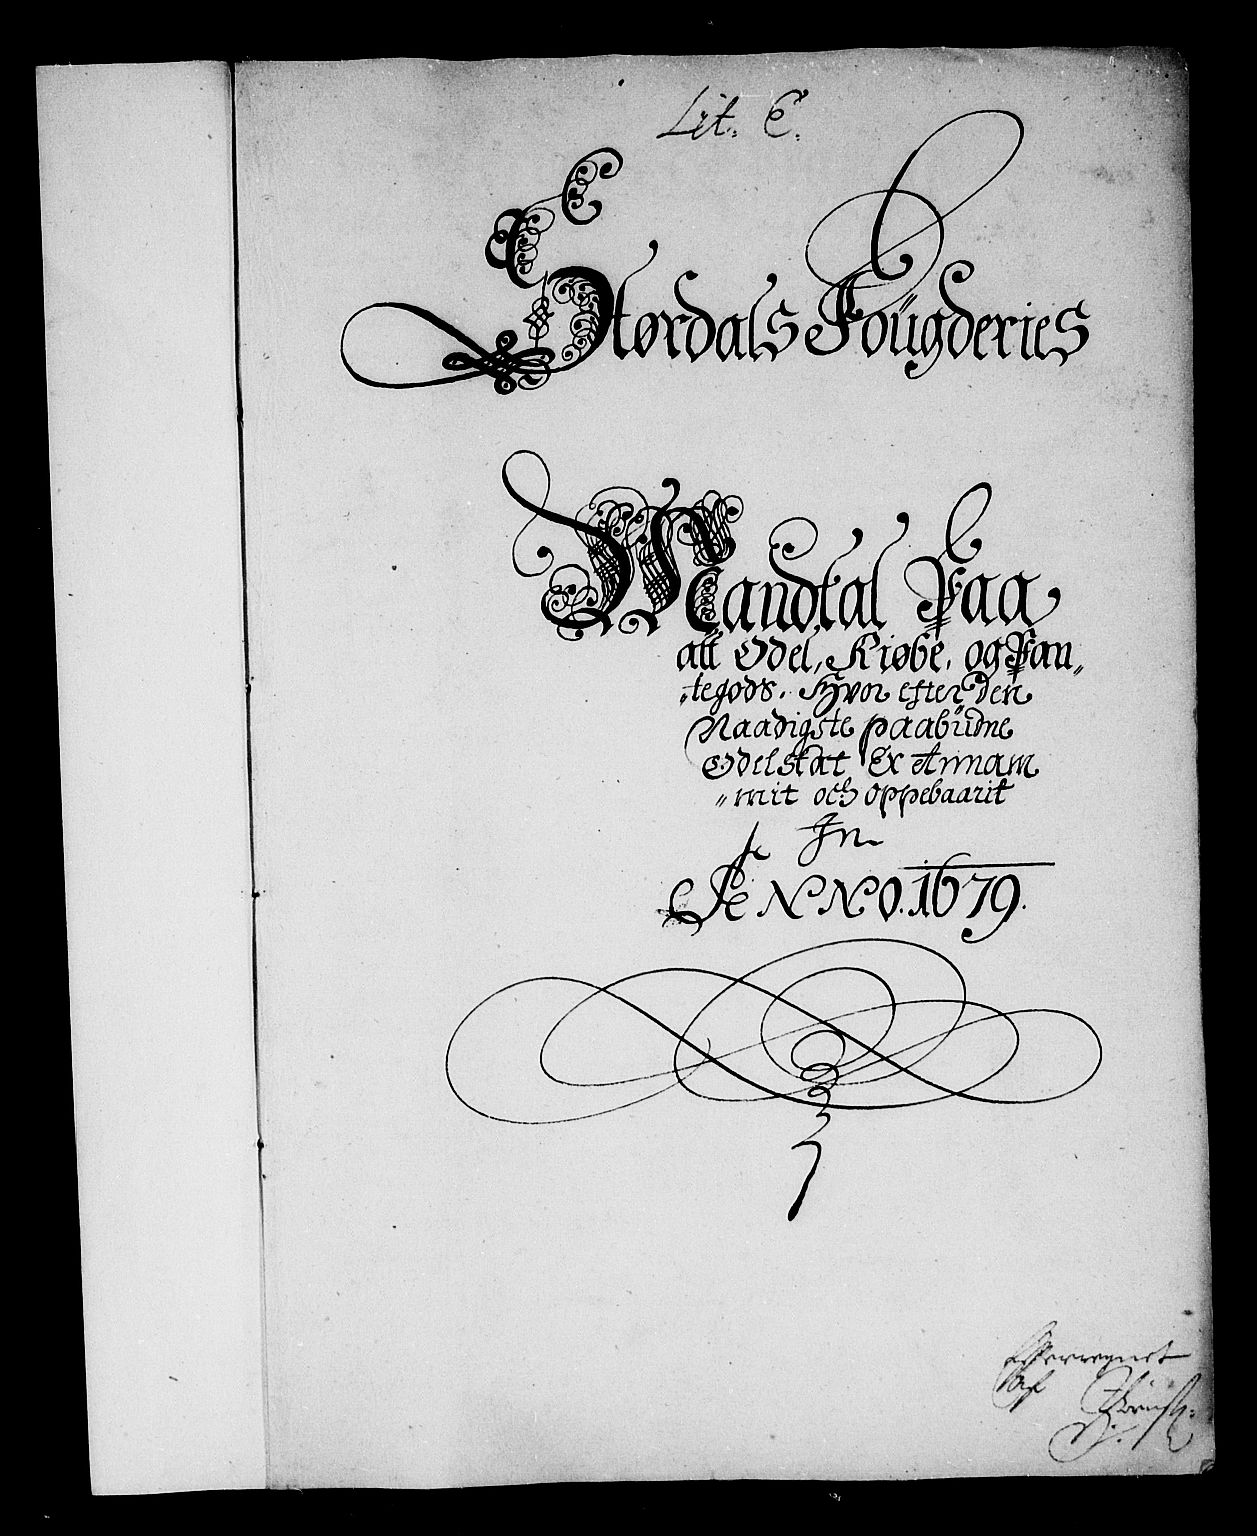 Lit. E.
Størdals Foügderies
Mandtal Paa
att Odel, Kiøbe, og Pan„
„tegods. Hvor efter den
Naadigste paabüdne
Odelskat Er Annam
„mit och oppebaarit
In
ANNO. 1679.
Efterregnet
af